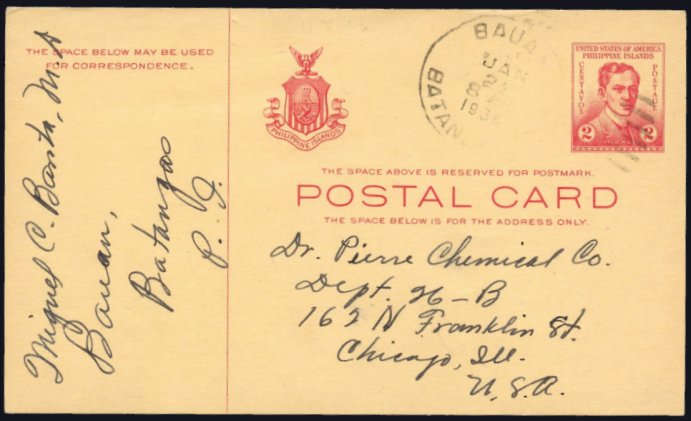 THE SPACE BELOW MAY BE USED
FOR CORRESPONDENCE.
Miguel C. Banta,
Bauan,
Batangas
P. I.
PHILIPPINE ISLANDS
BAUAN
JAN
BATAN
UNITED STATES OF AMERICA
PHILIPPINE ISLANDS
CENTAVOS
POSTAGE
2 2
THE SPACE ABOVE IS RESERVED FOR POSTMARK.
POSTAL CARD
THE SPACE BELOW IS FOR THE ADDRESS ONLY.
Dr. Pierre Chemical Co.
Dept. 26-B
162 N Franklin St.
Chicago, Ill.
U.S.A.